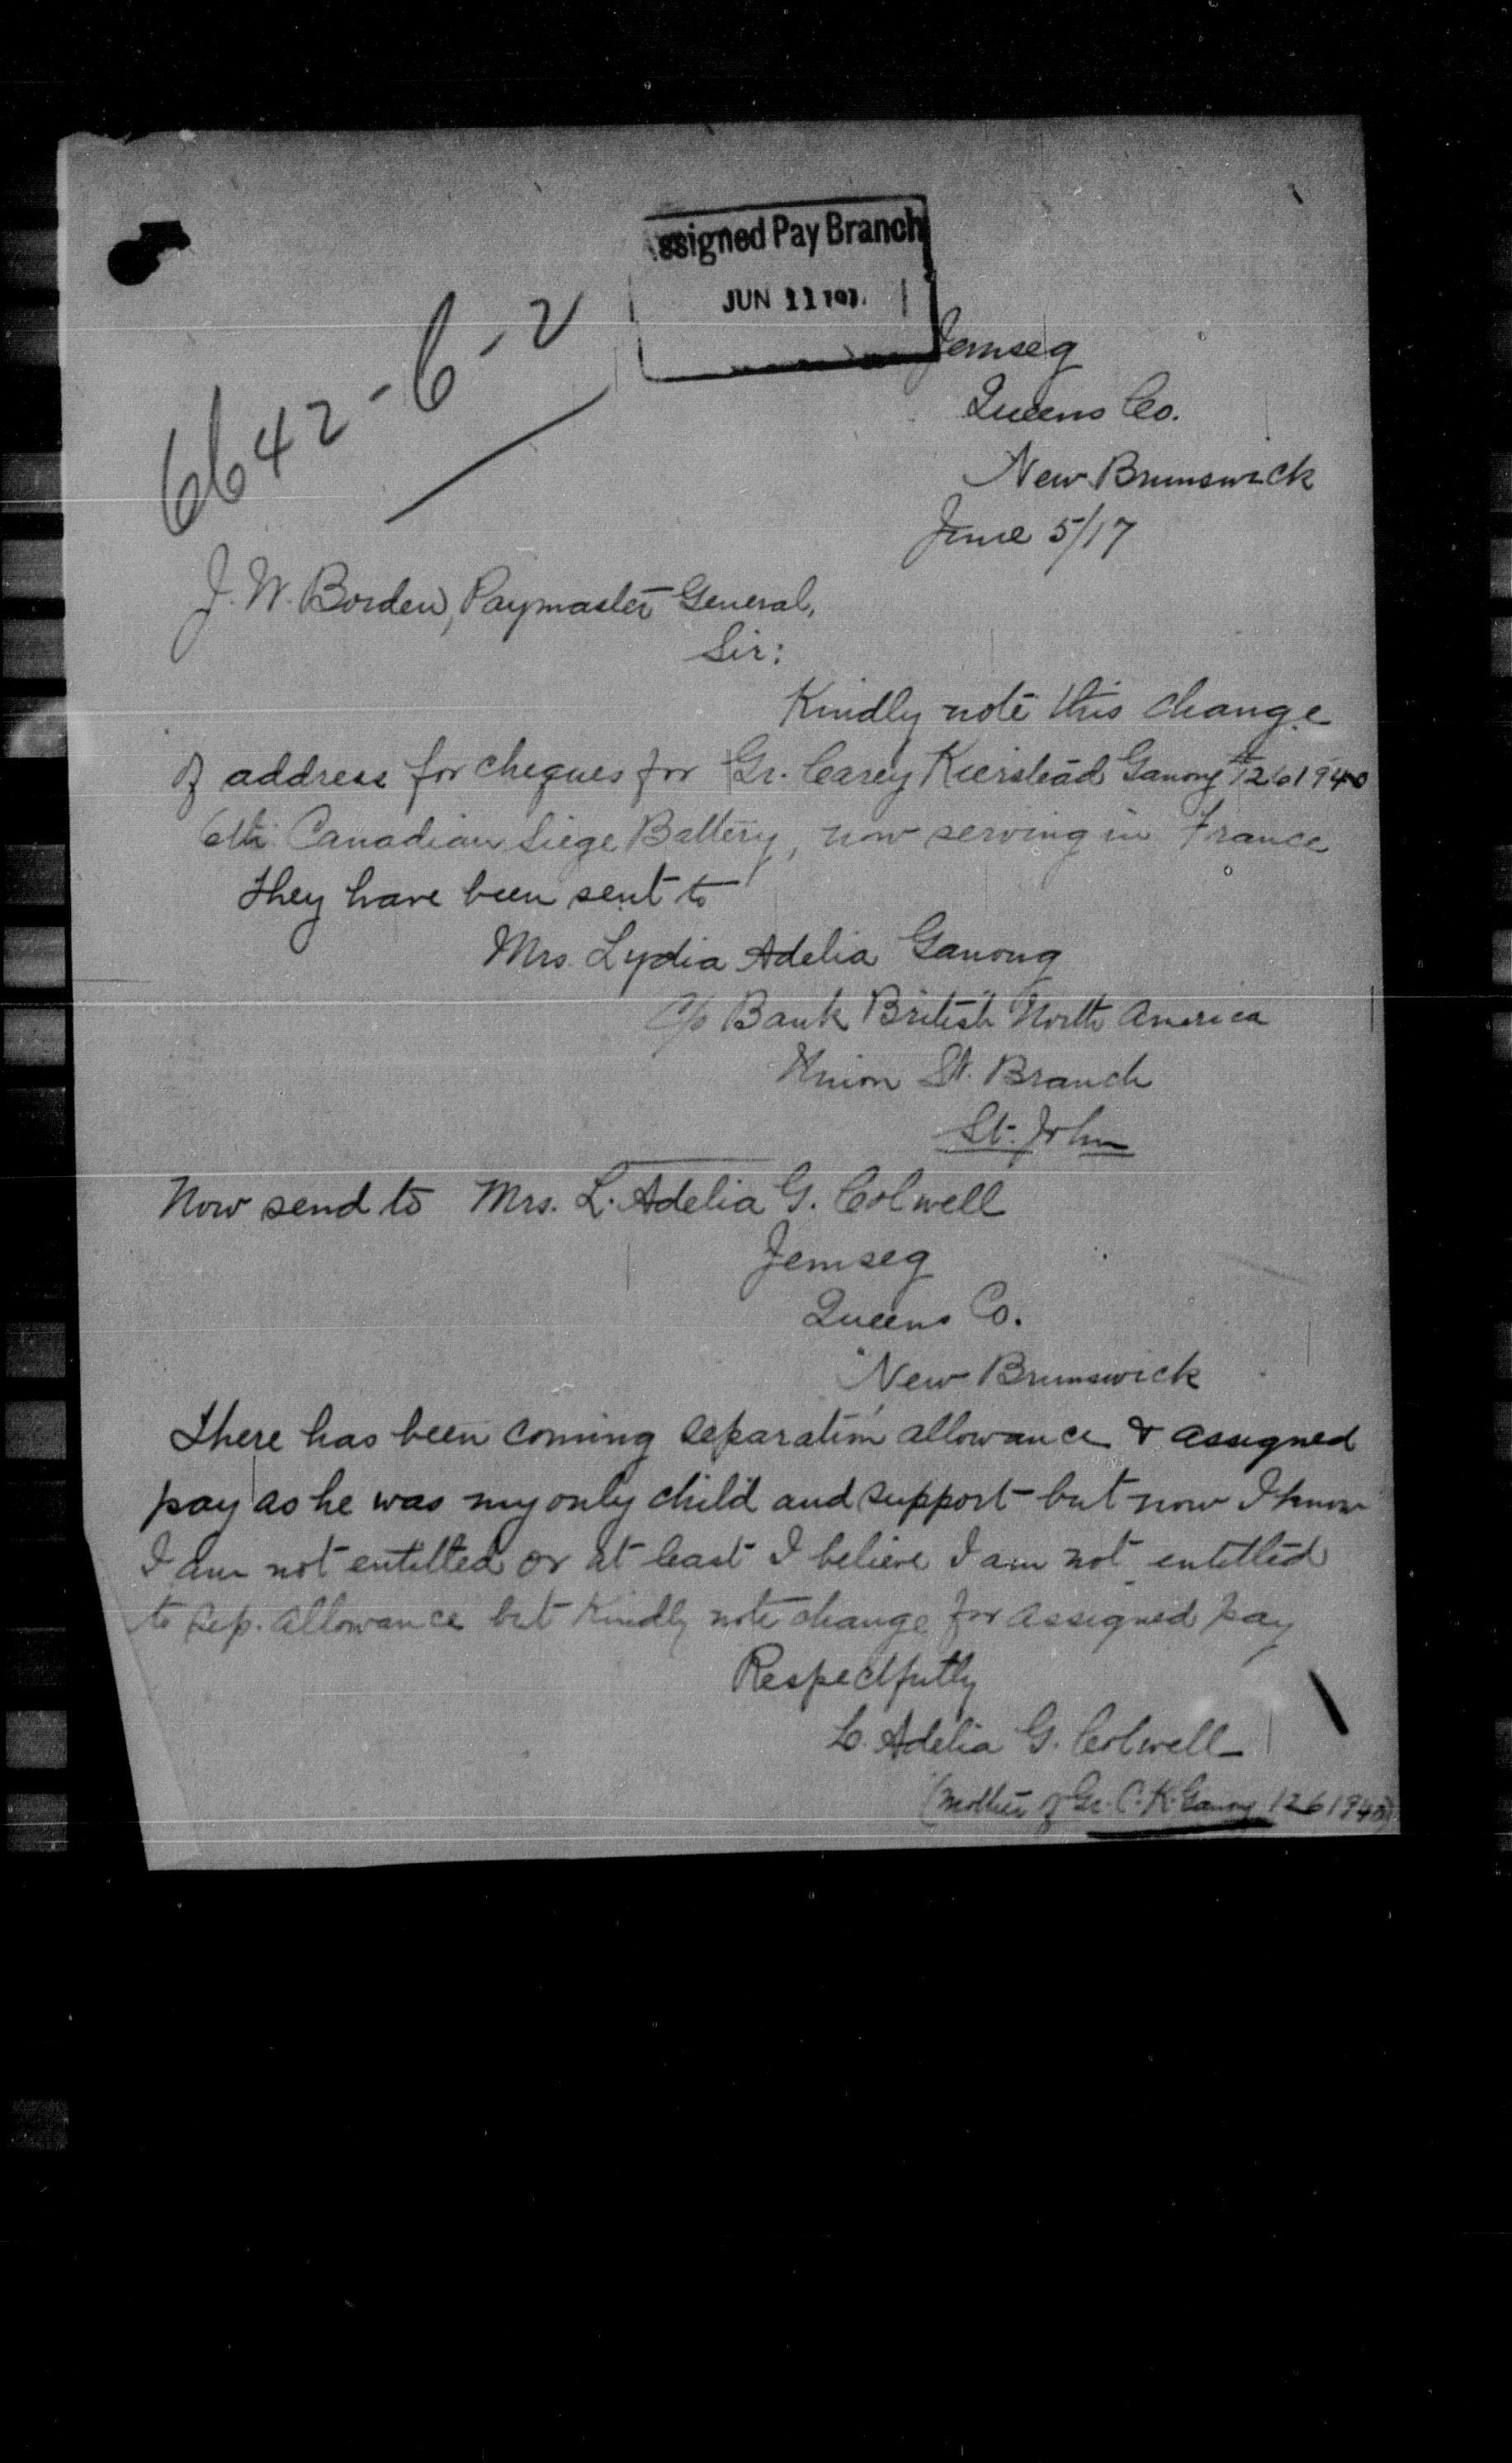 ssigned Pay Branch
JUN 11 191
6642-6-2
Jemseg
Queens Co.
New Brunswick
June 5/17
J. W. Borden, Paymaster General,
Sir:
Kindly note this change
of address for cheques for Gr. Carey Kierstead Ganong # 1261940
6th Canadian Siege Battery, now serving in France
They have been sent to
Mrs. Lydia Adelia Ganong
c/o Bank British North America
Union St. Branch
St. John
Now send to Mrs. L. Adelia G. Colwell
Jemseg
Queens Co.
New Brunswick
There has been coming separation allowance & assigned
pay as he was my only child and support - but now I know
I am not entitled or at least I believe I am not entitled
to sep. allowance but kindly note change for assigned pay
Respectfully
L. Adelia G. Colwell
(mother of Gr. C. K. Ganong 1261940)